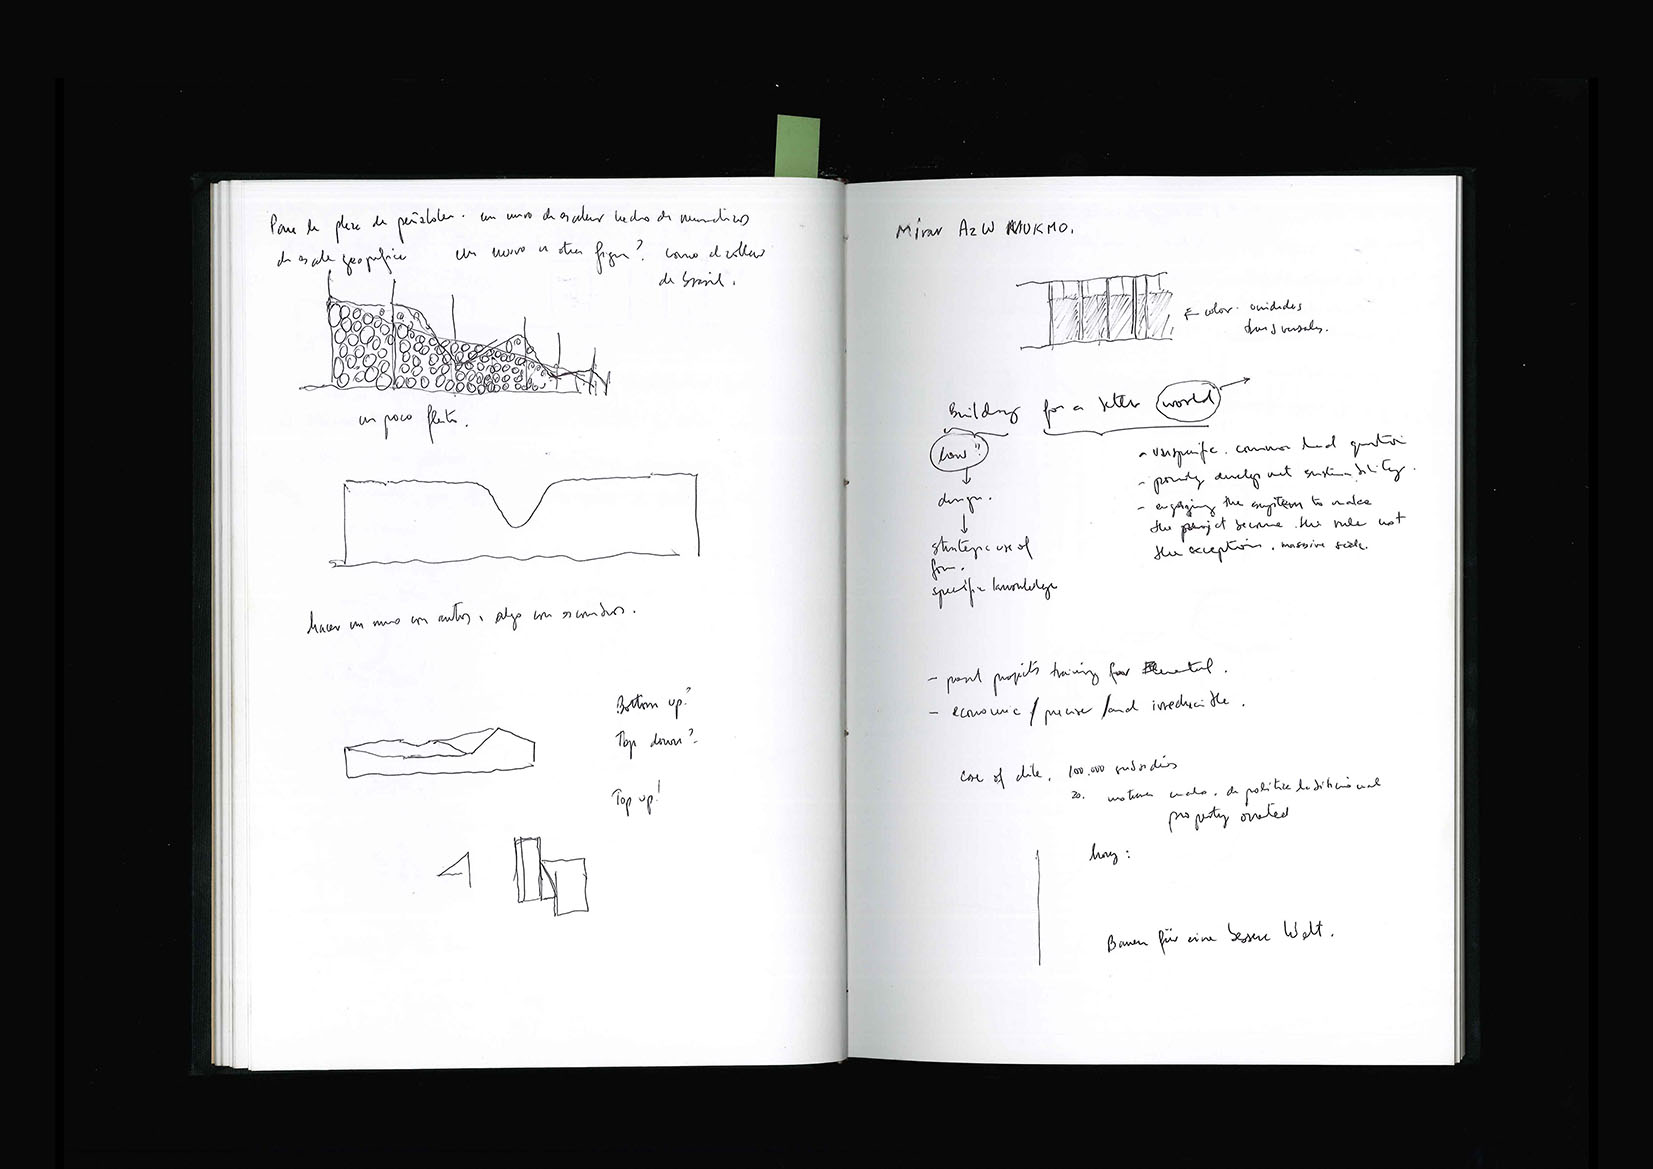 Para la plaza de peñalolen. un muro de escalar hecho de neumáticos
de escala geográfica un muro u otra figura? como el collar
de Brasil.
un poco flexible.
hacer un muro con autos, algo con escombros.
Bottom up?
Top down?
Top up!
Mirar AZW
color. unidades
transversales.
Building for a better world
how?
design.
strategic use of
form.
specific knowledge
- unspecific. common
- poverty development sustainability.
- engaging the system to make
the project become the rule not
the exception. massive scale.
- past projects training for Elemental.
- economic / precise / and irreducible.
case of Chile. 100.000 subsidios
20.
property oriented
Bauen für eine bessere Welt.